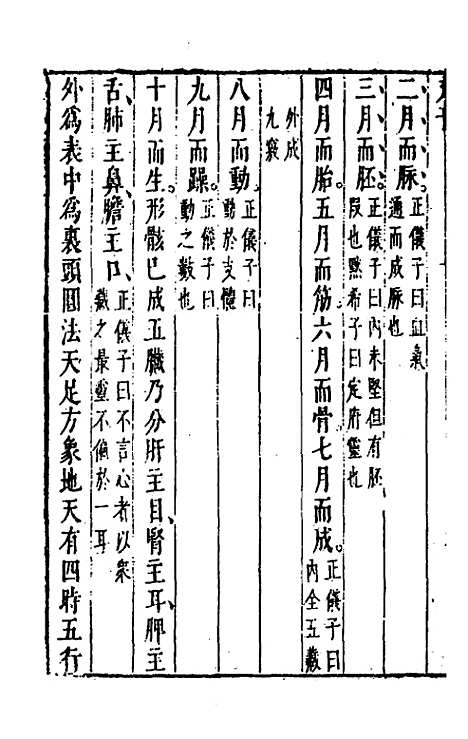 二月而脉。正儀子曰血氣
通而成脉也
三月而胚。正儀子曰内未堅但有胚
段也默希子曰定府靈也
四月而胎。五月而筋六月而骨七月而成。正儀子曰
内全五藏
外成
九竅
八月而動。正儀子曰
動於支體
九月而躁。正儀子曰
動之數也
十月而生。形骸已成五臟乃分肝主目、腎主耳、脾主
舌、肺主鼻、膽主口、正儀子曰不言心者以衆
藏之最靈不偏於一耳
外爲表中爲裏頭圓法天足方象地天有四時五行